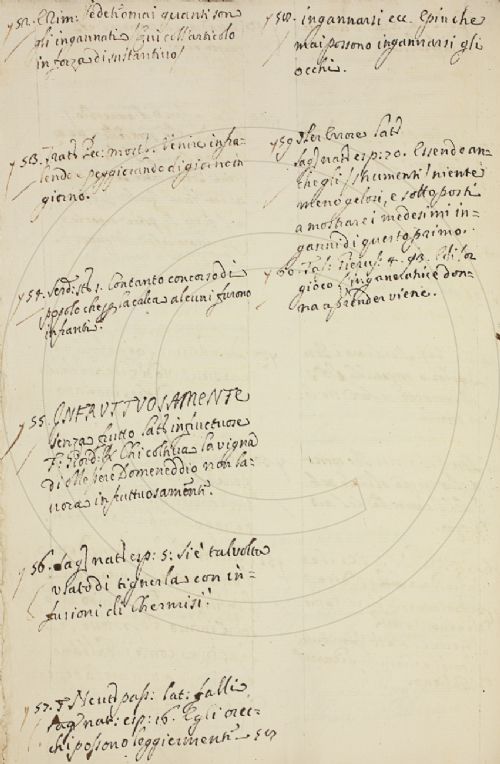 52. Rim: Vedeti omai quanti son
gli ingannati. Qui coll'articolo
in forza di sustantivo
53. Trat: Pec: mort: Venire infra-
lendo e peggiorando di giorno in
giorno.
54. Serd: St: 1. Con tanto concorso di
popolo che per la calca alcuni furono
infranti.
55. INFRUTTUOSAMENTE
Senza frutto lat: infructuose
F: Giord: Chi coltiva la vigna
di Messere Domeneddio non la-
vora infruttuosamente.
56. Sag: nat: esp: 5: Si è talvolta
usato di tignerla con in-
fusioni di Chermisi.
57. Neut: pass: lat: falli
Sag: nat: esp: 16. Egli orec-
chi possono leggiermente
58. ingannarsi ecc. E pin che
mai possono ingannarsi gli
occhi.
59 Per Errore lat:
Sag: nat: esp: 20. Essendo an-
che gli strumenti niente
meno gelosi, e sottoposti
a mostrare i medesimi in-
ganni di questo primo.
60. Tas: Gerus: 4. 48. Ed or
gioco ingannatrice don-
na a prender viene.